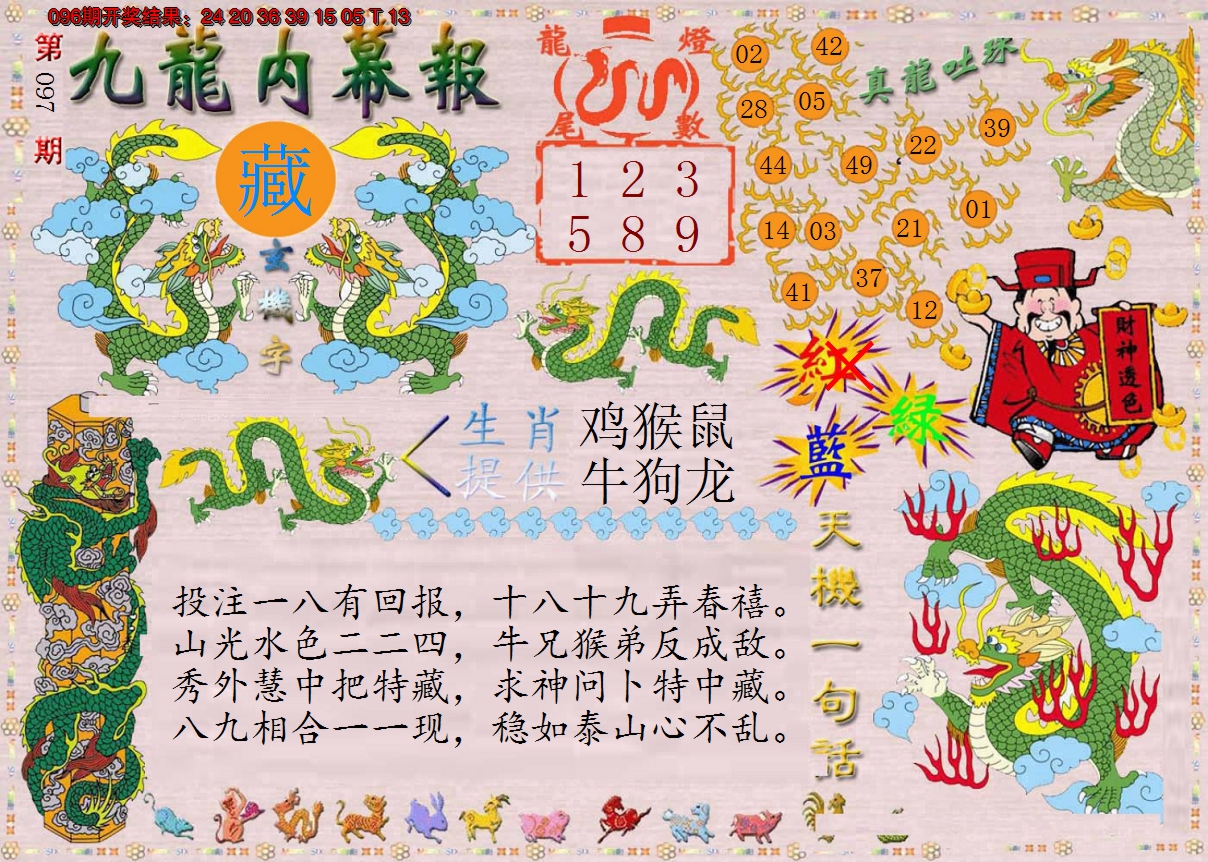 096期开奖结果：24 20 36 39 15 05 T 13
第097期
九龍内幕報
藏
玄機字
龍燈
尾數
1 2 3
5 8 9
真龍吐珠
02 42
28 05
39
22
44 49
01
14 03 21
37
41
12
財神透色
紅
綠
藍
生肖 鸡猴鼠
提供 牛狗龙
天機一句话
投注一八有回报，十八十九弄春禧。
山光水色二二四，牛兄猴弟反成敌。
秀外慧中把特藏，求神问卜特中藏。
八九相合一一现，稳如泰山心不乱。